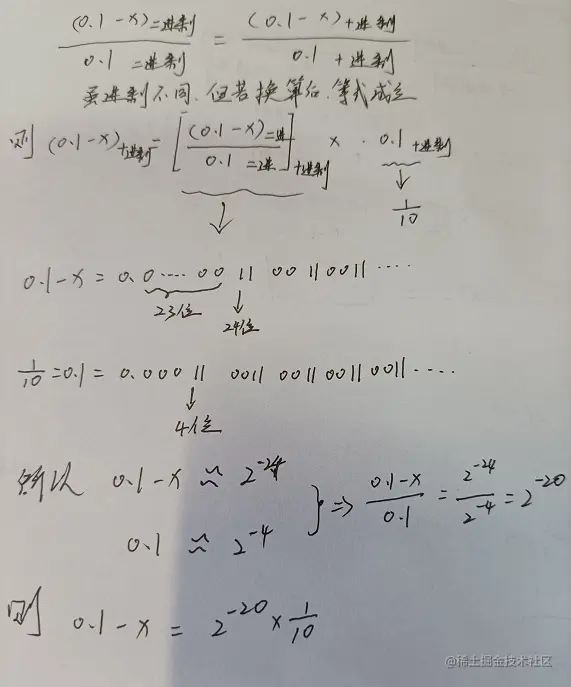 (0.1-x)二进制 / 0.1 二进制 = (0.1-x)十进制 / 0.1 十进制
虽进制不同,但若换算后,等式成立
则 (0.1-x)十进制 = [(0.1-x)二进 / 0.1 二进]十进制 × 0.1 十进制
↓ 1/10
↓
0.1-x = 0.0····00 11 00 11 0011 ····
23位 24位
1/10 = 0.1 = 0.000 11 0011 0011 0011 0011 ····
4位
所以 0.1-x ≈ 2^-24
0.1 ≈ 2^-4
} => 0.1-x / 0.1 = 2^-24 / 2^-4 = 2^-20
则 0.1-x = 2^-20 × 1/10
@稀土掘金技术社区